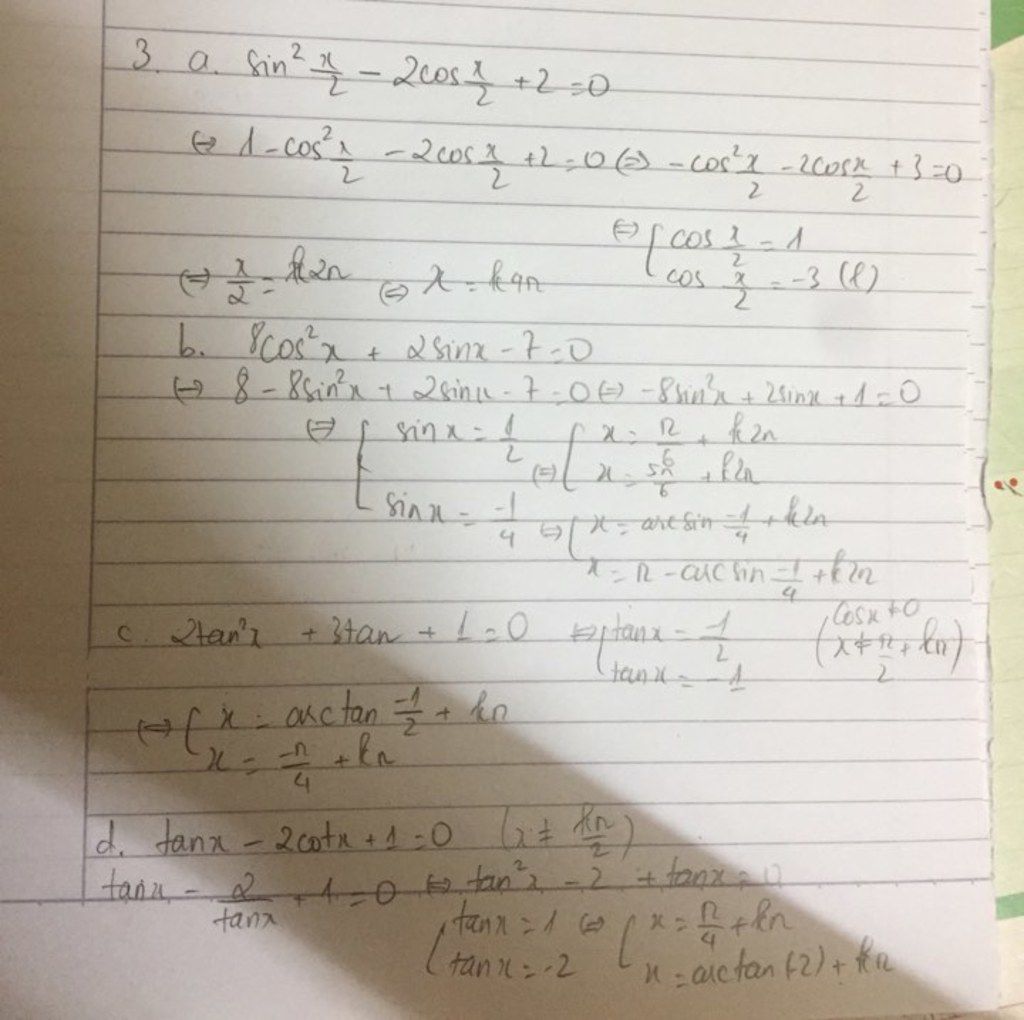 3. a. sin² x/2 - 2cos x/2 + 2 = 0
⇔ 1 - cos² x/2 - 2cos x/2 + 2 = 0 ⇔ - cos² x/2 - 2cos x/2 + 3 = 0
⇔ [ cos x/2 = 1
cos x/2 = -3 (l)
⇔ x/2 = k2π ⇔ x = k4π
b. 8cos²x + 2sinx - 7 = 0
⇔ 8 - 8sin²x + 2sinx - 7 = 0 ⇔ -8sin²x + 2sinx + 1 = 0
⇔ [ sinx = 1/2 ⇔ [ x = π/6 + k2π
x = 5π/6 + k2π
sinx = -1/4 ⇔ [ x = arcsin -1/4 + k2π
x = π - arcsin -1/4 + k2π
c. 2tan²x + 3tan + 1 = 0 ⇔ [ tanx = -1/2 ( cosx ≠ 0
tanx = -1 x ≠ π/2 + kπ )
⇔ [ x = arctan -1/2 + kπ
x = -π/4 + kπ
d. tanx - 2cotx + 1 = 0 (x ≠ kπ/2)
tanx - 2/tanx + 1 = 0 ⇔ tan²x - 2 + tanx = 0
[ tanx = 1 ⇔ [ x = π/4 + kπ
tanx = -2 x = arctan(-2) + kπ